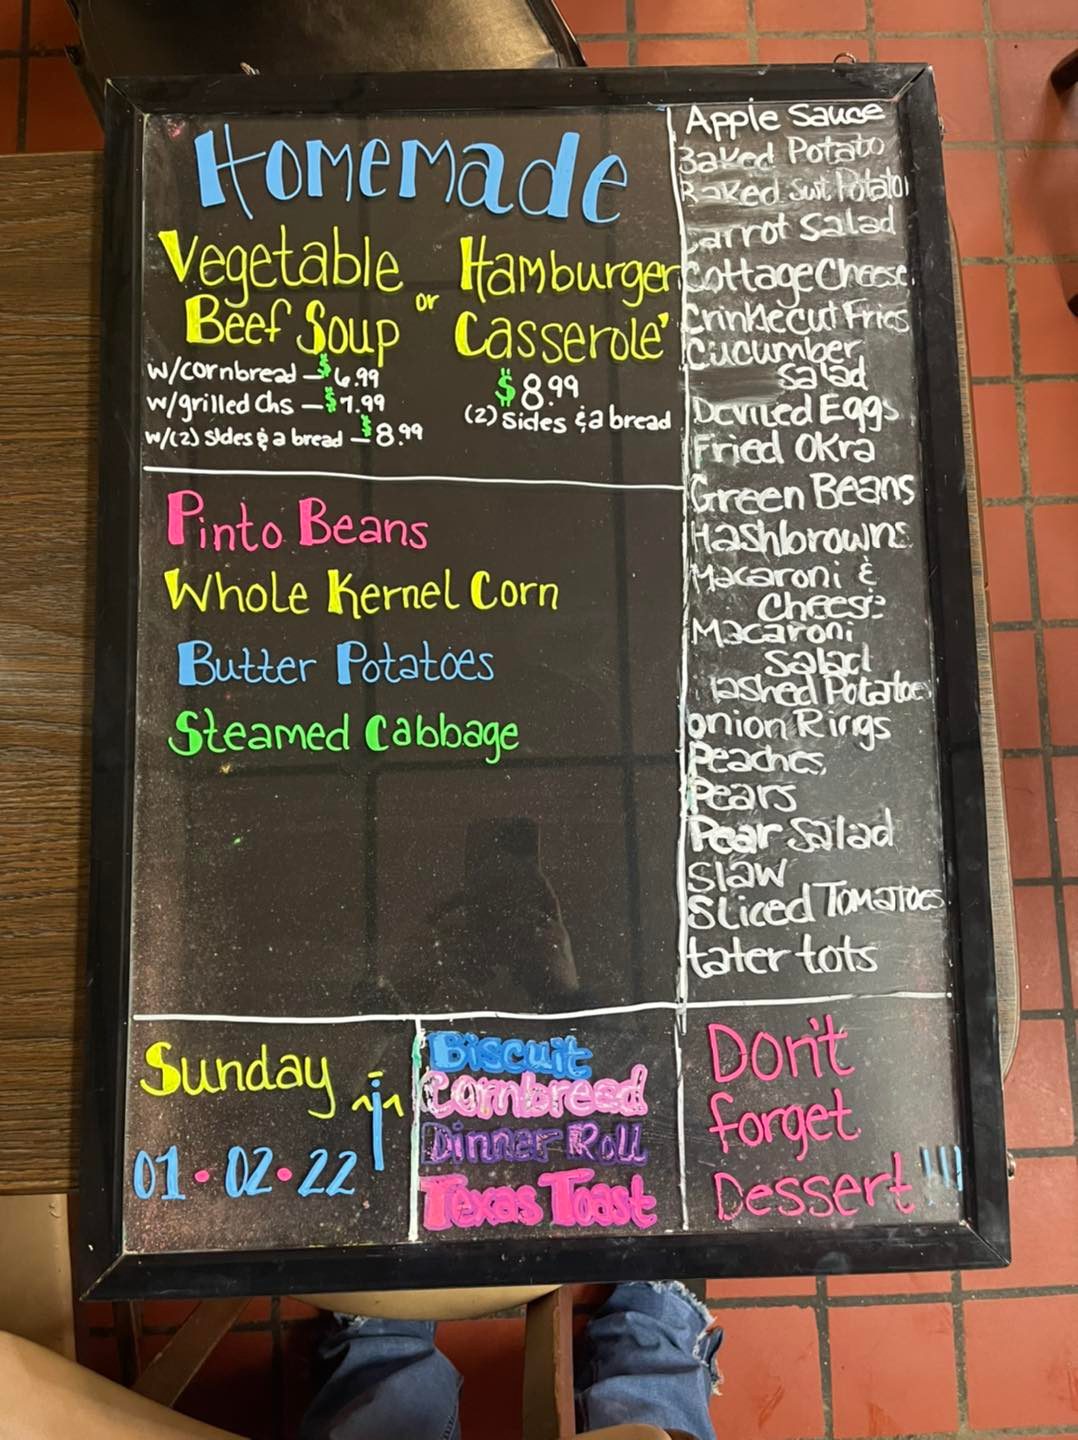 Homemade
Vegetable
Beef Soup
or
Hamburger
Casserole'
w/cornbread — $6.99
w/grilled Chs — $7.99
w/(2) sides & a bread — $8.99
$8.99
(2) sides & a bread
Pinto Beans
Whole Kernel Corn
Butter Potatoes
Steamed Cabbage
Apple Sauce
Baked Potato
Baked Swt Potato
Carrot Salad
Cottage Cheese
Crinklecut Fries
Cucumber
Salad
Deviled Eggs
Fried Okra
Green Beans
Hashbrowns
Macaroni &
Cheese
Macaroni
Salad
Mashed Potatoes
Onion Rings
Peaches
Pears
Pear Salad
Slaw
Sliced Tomatoes
tater tots
Sunday
01·02·22
Biscuit
Cornbread
Dinner Roll
Texas Toast
Don't
forget
Dessert!!!